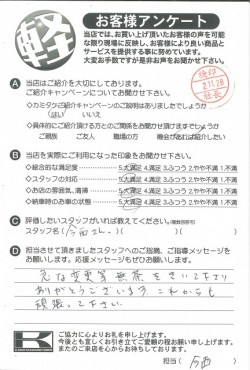 軽
お客様アンケート
当店では、お買い上げ頂いたお客様の声を可能な限り現場に反映し、お客様により良い商品とサービスを提供する事に努めています。
大変お手数ですが是非お声をお聞かせ下さい。
検印
21.11.28
店長
A 当店はご紹介を大切にしております。
ご紹介キャンペーンについてお聞かせ下さい。
◇カミタケご紹介キャンペーンのご説明はありましたでしょうか
はい いいえ
◇具体的にご紹介頂ける方とのご関係をお聞かせ頂けますでしょうか
ご親族 ご友人 職場の方 機会があれば紹介したい
B 当店を実際にご利用になった印象をお聞かせ下さい。
◇総合的な満足度 5.大満足 4.満足 3.ふつう 2.やや不満 1.不満
◇スタッフの対応 5.大満足 4.満足 3.ふつう 2.やや不満 1.不満
◇お店の雰囲気、清掃 5.大満足 4.満足 3.ふつう 2.やや不満 1.不満
◇納車時のお車の状態 5.大満足 4.満足 3.ふつう 2.やや不満 1.不満
C 評価したいスタッフがいれば教えてください。(複数回答可)
スタッフ名( 今西さん )
D 担当させて頂きましたスタッフへのご指摘、ご指導メッセージをお願いします。応援メッセージもぜひお願いします。
急な変更等無茶をきいて下さり
ありがとうございます。これからも
頑張って下さい。
K
ご協力に心よりお礼を申し上げます。
今後とも宜しくお引き立てご愛顧の程お願い申し上げます。
またのご来店を心からお待ちしております。
担当( 今西 )